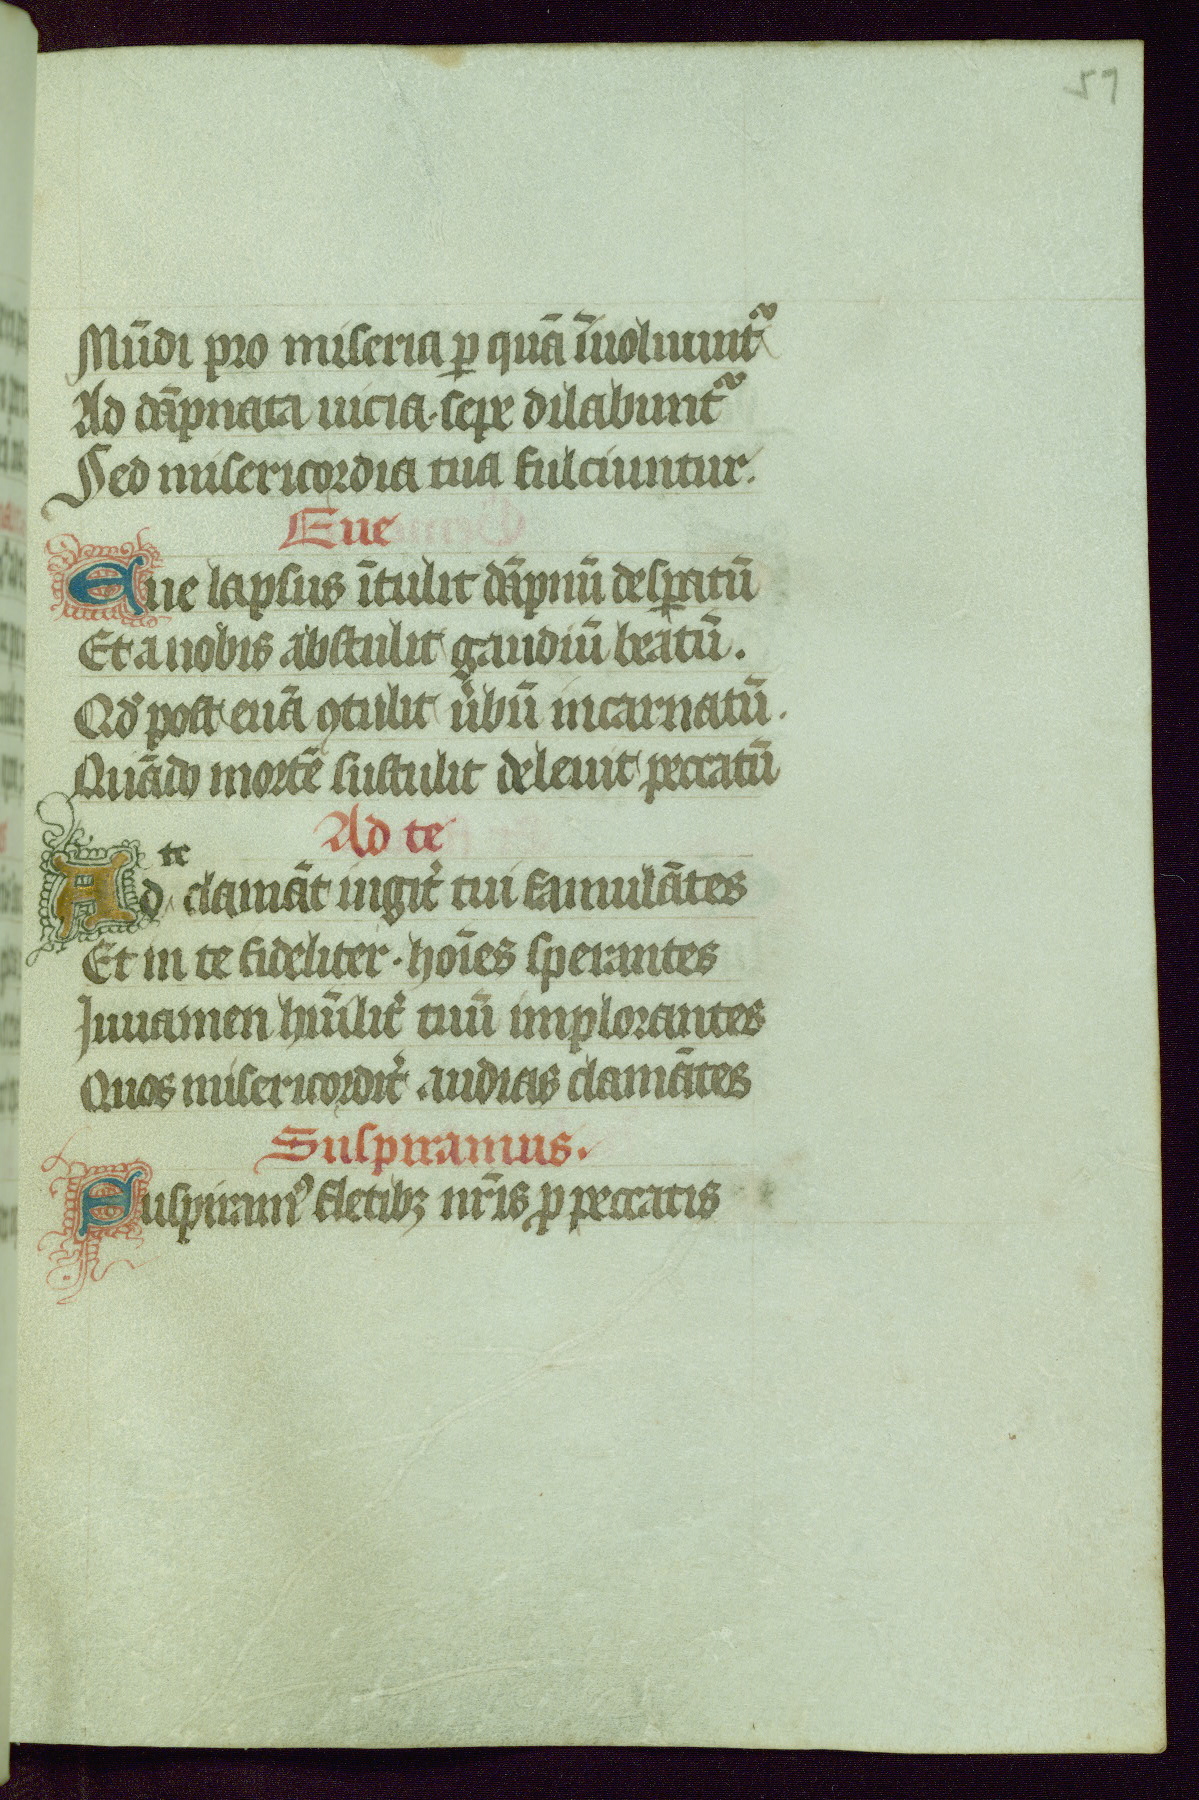 59
Mūdi pro miseria ꝑ quā īuoluunt᷑
Ad dāpnata uicia. sepe dilabunt᷑
Sed misericordia tua fulciuntur.
Eue
Eue lapsus ītulit dāpnū desꝑatū
Et a nobis abstulit gaudiū beatū.
Qd̛ post euā ꝯtulit u̓bū incarnatū.
Quādo mortē sustulit deleuit peccatū
Ad te
Ad te clamāt iugit̛ tui famulātes
Et in te fideliter. hoīes sperantes
Iuuamen hūilit̛ tuū implorantes
Quos misericordit̛ audias clamātes
Suspiramus.
Suspiramꝰ fletibꝫ nr̄is ꝓ peccatis